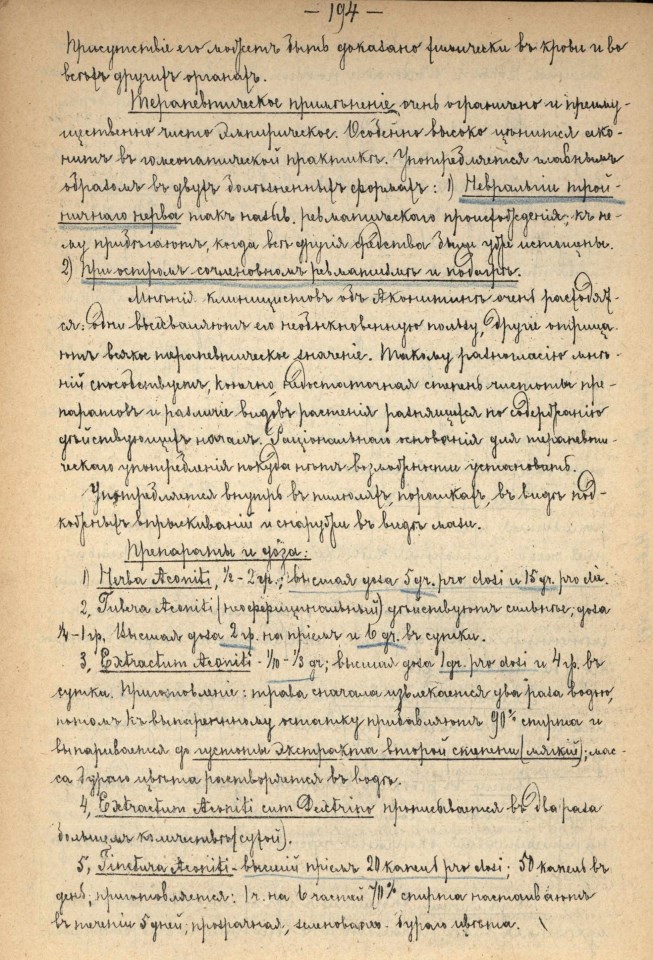 — 194 —
Присутствіе его можетъ быть доказано химически въ крови и во
всѣхъ другихъ органахъ.
Терапевтическое примѣненіе очень ограничено и преиму-
щественно чисто эмпирическое. Особенно высоко цѣнится ако-
нитъ въ гомеопатической практикѣ. Употребляется главнымъ
образомъ въ двухъ болѣзненныхъ формахъ: 1) Невральгіи трой-
ничнаго нерва такъ назыв. ревматическаго происхожденія, къ не-
му прибѣгаютъ, когда всѣ другія средства были уже истощены.
2) При остромъ сочленовномъ ревматизмѣ и подагрѣ.
Мнѣнія клиницистовъ объ Аконитинѣ очень расходят-
ся: одни восхваляютъ его необыкновенную пользу, другіе отрица-
ютъ всякое терапевтическое значеніе. Такому разногласію мнѣ-
ній способствуетъ, конечно, недостаточная степень чистоты пре-
паратовъ и различіе видовъ растенія разнящихся по содержанію
дѣйствующихъ началъ. Раціональнаго основанія для терапевти-
ческаго употребленія покуда нѣтъ возможности установить.
Употребляется внутрь въ пилюляхъ, порошкахъ, въ видѣ под-
кожныхъ впрыскиваній и снаружи въ видѣ мази.
Препараты и доза:
1) Herba Aconiti, ½ - 2 гр.; высшая доза 5 gr. pro dosi и 15 gr. pro die.
2, Tubera Aconiti (неофициональный) дѣйствуютъ сильнѣе; доза
¼ - 1 гр. Высшая доза 2 гр. на пріемъ и 6 gr. въ сутки.
3, Extractum Aconiti - 1/10 - 1/3 gr; высшая доза 1 gr. pro dosi и 4 гр. въ
сутки. Приготовленіе: трава сначала извлекается два раза водою,
потомъ къ выпаренному остатку прибавляютъ 90% спирта и
выпаривается до густоты экстракта второй степени (мягкій); мас-
са бураго цвѣта растворяется въ водѣ.
4, Extractum Aconiti cum Dextrino прописывается въ два раза
большемъ количествѣ (сухой).
5, Tinctura Aconiti - высшій пріемъ 20 капель pro dosi; 50 капель въ
день; приготовляется: 1 ч. на 6 частей 70% спирта настаиваютъ
въ теченіи 5 дней; прозрачная, зеленовато-бураго цвѣта.